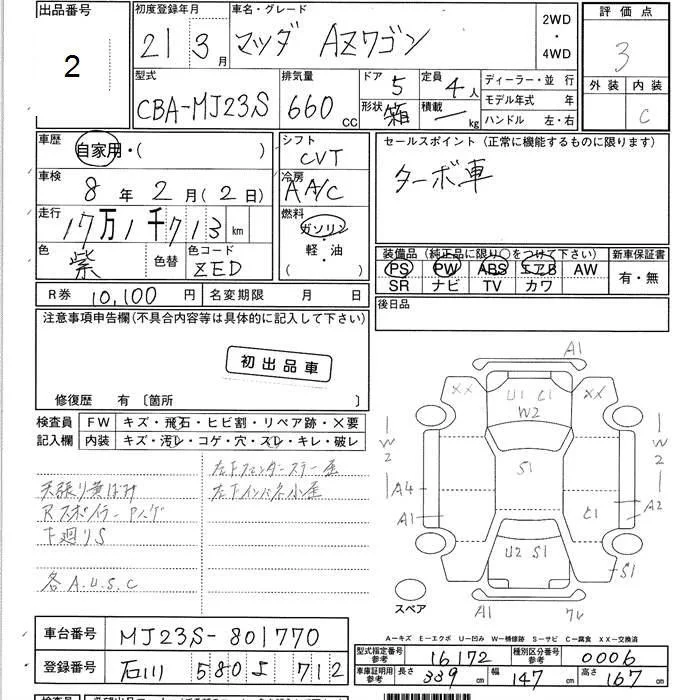 出品番号
2
初度登録年月
21 3月
車名・グレード
マツダ AZワゴン
2WD
・
4WD
評価点
3
外装 内装
C
型式
CBA-MJ23S
排気量
660 CC
ドア 5
形状 箱
定員 4人
積載 ー kg
ディーラー・並 行
モデル年式 年
ハンドル 左・右
車歴
自家用・( )
車検
8年2月(2日)
走行
17万1千713 km
色
紫
色替
色コード
ZED
シフト
CVT
冷房
AA/C
燃料
ガソリン
・
軽・油
( )
セールスポイント (正常に機能するものに限ります)
ターボ車
装備品 (純正品に限り○をつけて下さい)
PS PW ABS エアB AW
SR ナビ TV カワ
新車保証書
有・無
R券 10,100円
名変期限 月 日
後日品
注意事項申告欄(不具合内容等は具体的に記入して下さい)
初出品車
修復歴 有 〔箇所 〕
検査員
記入欄
FW キズ・飛石・ヒビ割・リペア跡・×要
内装 キズ・汚レ・コゲ・穴・スレ・キレ・破レ
天張り黄ばみ
下廻りS
各A.U.S.C
A1
XX
XX
U1 C1
W2
W2
W2
S1
A4
A1
C1
A2
U2 S1
S1
A1
スペア
A−キズ E−エクボ U−凹み W−補修跡 S−サビ C−腐食 XX−交換済
車台番号 MJ23S-801770
登録番号 石川 580 712
型式指定番号
参考
16172
種別区分番号
参考
0006
車庫証明用
参考
長さ 339 cm
幅 147 cm
高さ 167 cm